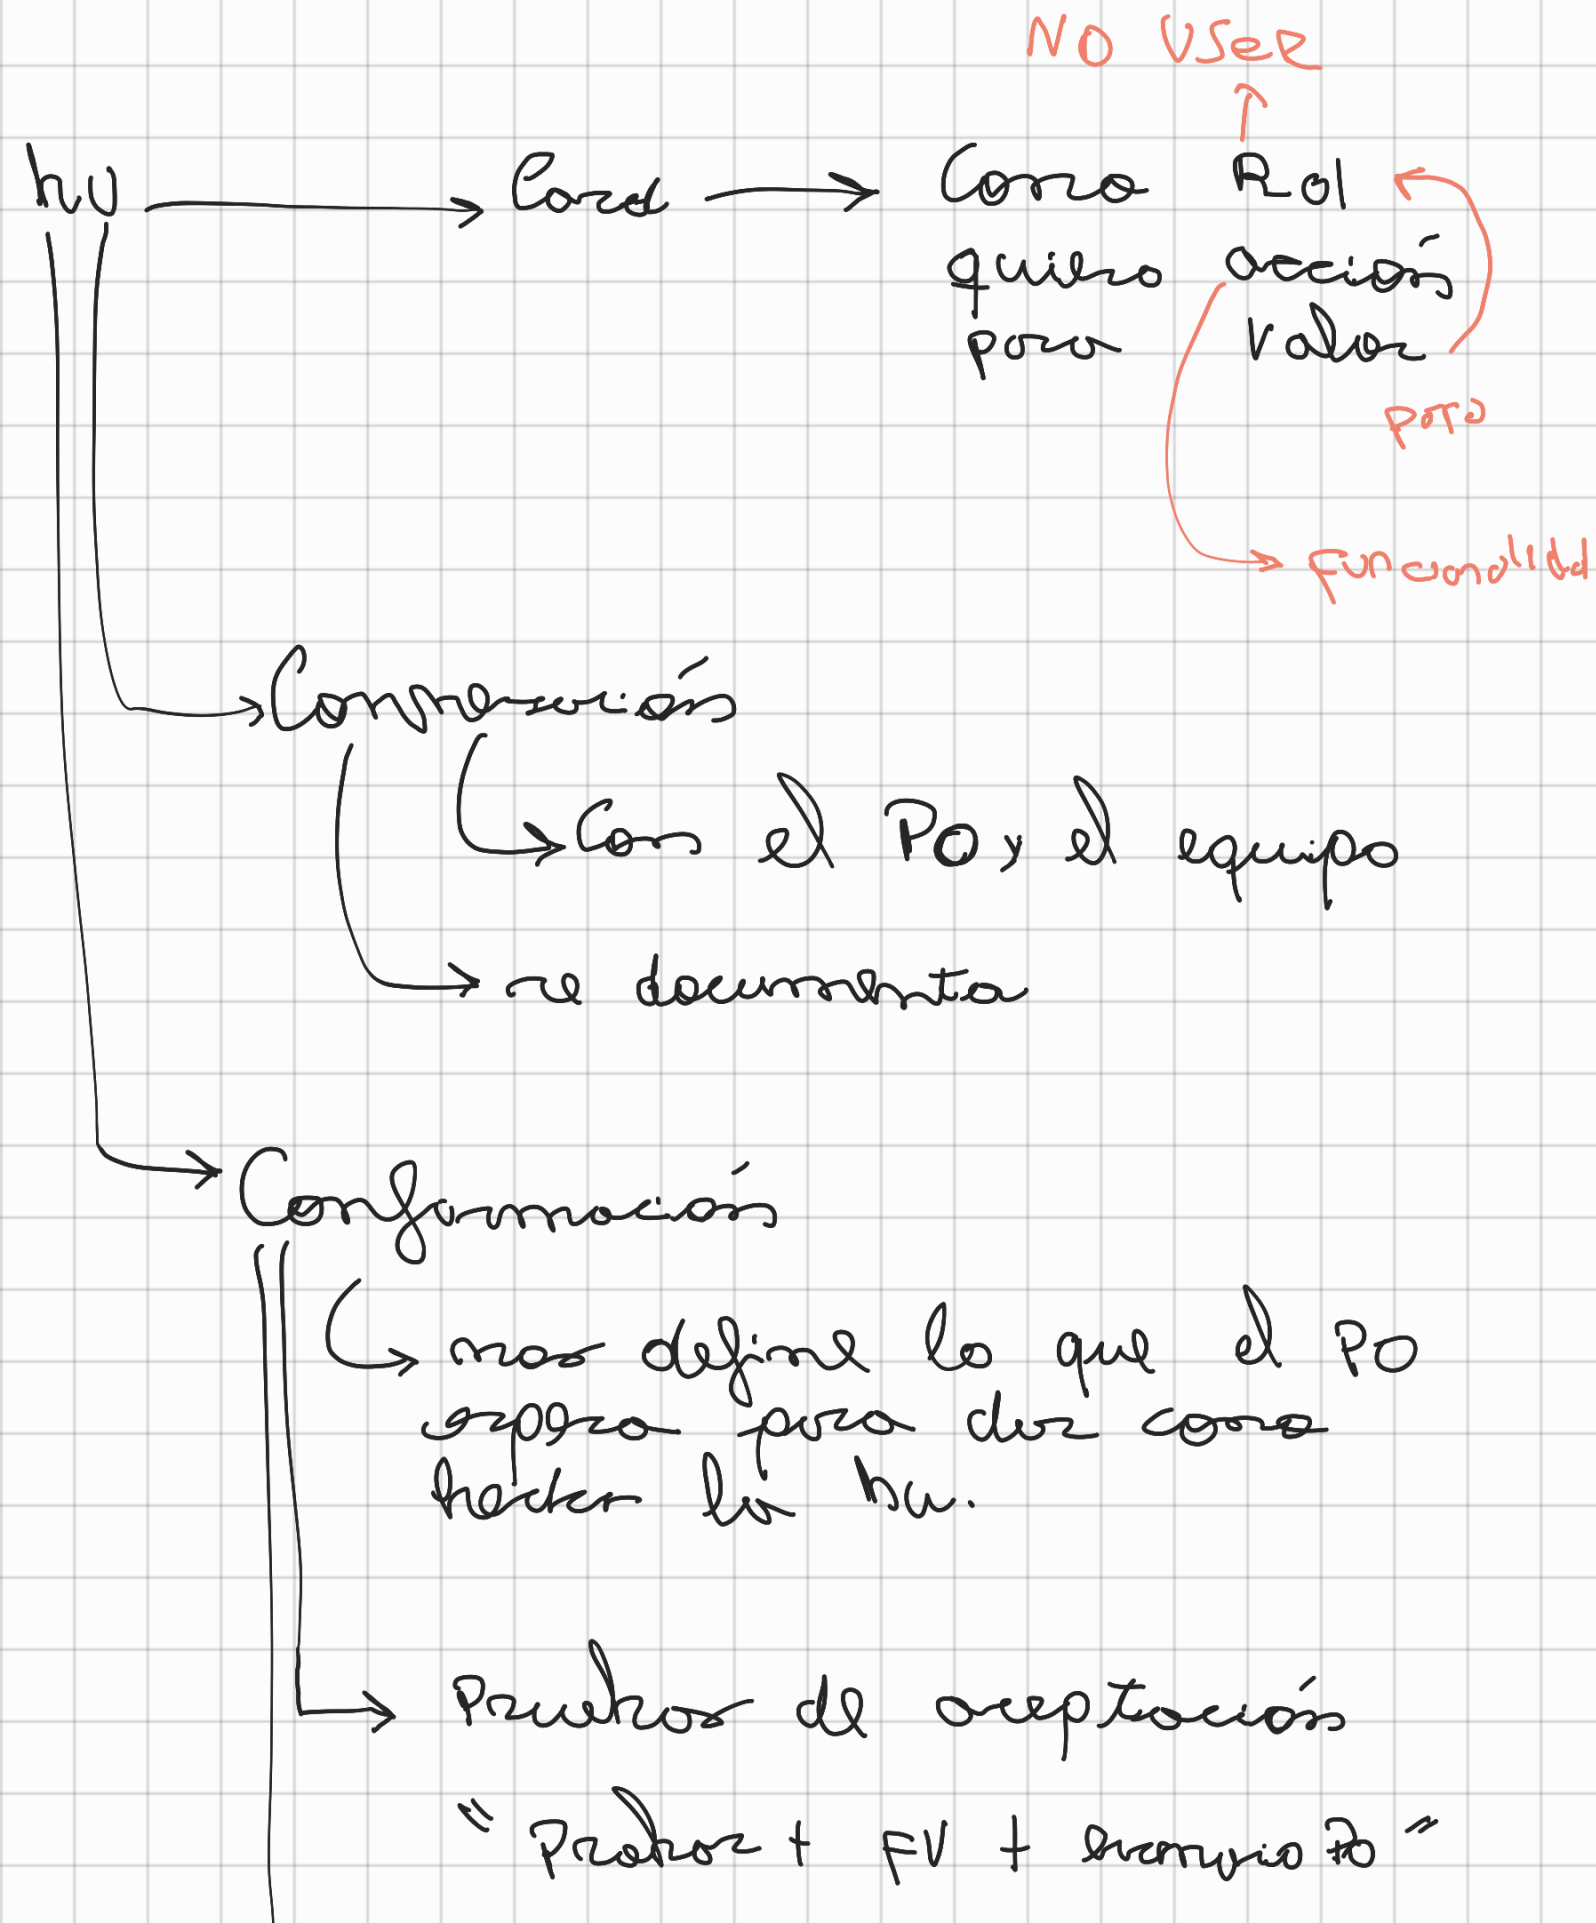 NO USER
hU → Card → Como Rol
quiero acción
para Valor
para
Funcionalidd
Conversación
Con el PO y el equipo
se documenta
Confirmación
nos define lo que el PO
espera para dar como
hecha la hu.
Pruebas de aceptación
"Probar + FV + escenario